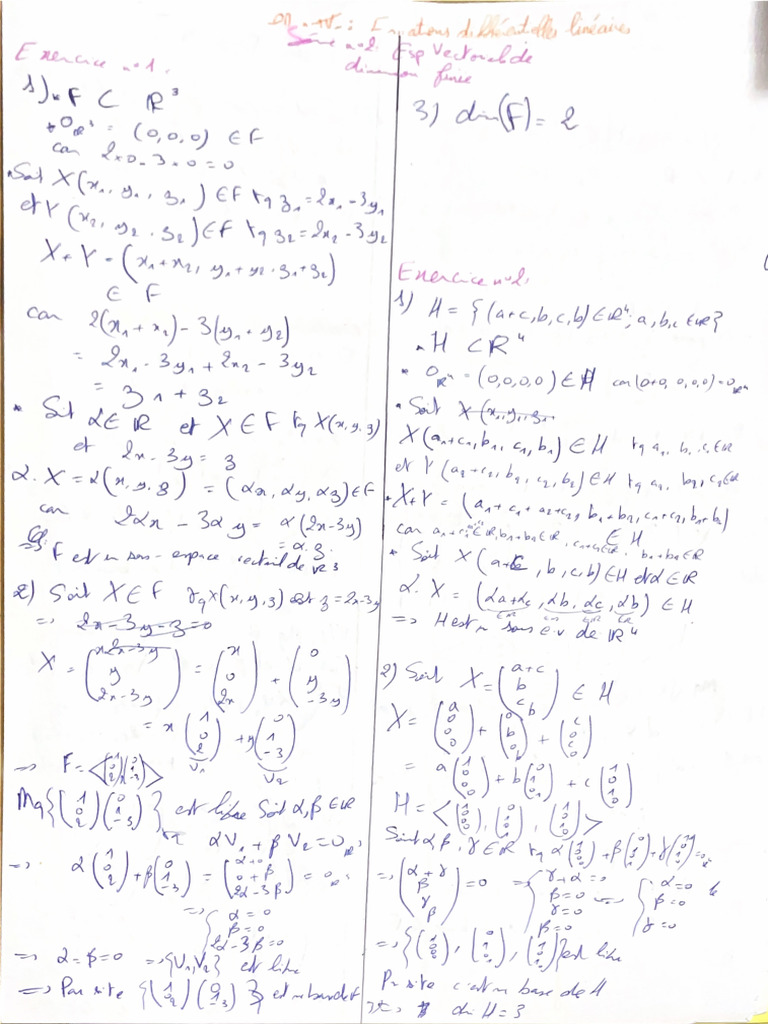 Equations différentielles linéaires
Série n°2: Esp Vectoriel de
dimension finie
Exercice n°1.
1) * F ⊂ ℝ³
* 0_ℝ³ = (0,0,0) ∈ F
car 2×0 - 3×0 = 0
• Soit X(x₁, y₁, z₁) ∈ F tq z₁ = 2x₁ - 3y₁
et Y(x₂, y₂, z₂) ∈ F tq z₂ = 2x₂ - 3y₂
X + Y = (x₁+x₂, y₁+y₂, z₁+z₂)
∈ F
car 2(x₁+x₂) - 3(y₁+y₂)
= 2x₁ - 3y₁ + 2x₂ - 3y₂
= z₁ + z₂
* Soit α ∈ ℝ et X ∈ F tq X(x,y,z)
et 2x - 3y = z
α.X = α(x,y,z) = (αx, αy, αz) ∈ F
car 2αx - 3αy = α(2x-3y)
= α.z
=> F est un sous-espace vectoriel de ℝ³
2) Soit X ∈ F tq X(x,y,z) et z = 2x-3y
=> 2x - 3y - z = 0
X = (x, y, 2x-3y) = (x, 0, 2x) + (0, y, -3y)
= x(1, 0, 2) + y(0, 1, -3)
V₁ V₂
=> F = <(1, 0, 2)(0, 1, -3)>
Mq {(1, 0, 2)(0, 1, -3)} est libre Soit α,β ∈ ℝ
tq αV₁ + βV₂ = 0_ℝ³
=> α(1, 0, 2) + β(0, 1, -3) = (α+0, 0+β, 2α-3β) = 0_ℝ³
=> { α = 0
β = 0
2α-3β = 0
=> α = β = 0 => {V₁,V₂} est libre
=> Par suite {(1, 0, 2)(0, 1, -3)} est un base de F
3) dim(F) = 2
Exercice n°2:
1) H = {(a+c,b,c,b) ∈ ℝ⁴; a,b,c ∈ ℝ}
* H ⊂ ℝ⁴
* 0_ℝ⁴ = (0,0,0,0) ∈ H car (0+0,0,0,0) = 0_ℝ⁴
• Soit X(x₁,y₁,z₁
X(a₁+c₁,b₁,c₁,b₁) ∈ H tq a₁, b₁, c₁ ∈ ℝ
et Y(a₂+c₂,b₂,c₂,b₂) ∈ H tq a₂, b₂, c₂ ∈ ℝ
* X+Y = (a₁+c₁+a₂+c₂, b₁+b₂, c₁+c₂, b₁+b₂)
∈ H
car a₁+c₁ ∈ ℝ, b₁+b₂ ∈ ℝ, c₁+c₂ ∈ ℝ, b₁+b₂ ∈ ℝ
* Soit X(a+c, b, c, b) ∈ H et α ∈ ℝ
α.X = (αa+αc, αb, αc, αb) ∈ H
∈ℝ ∈ℝ ∈ℝ ∈ℝ
=> H est un sous e.v de ℝ⁴
2) Soit X = (a+c, b, c, b) ∈ H
X = (a, 0, 0, 0) + (0, b, 0, b) + (c, 0, c, 0)
= a(1, 0, 0, 0) + b(0, 1, 0, 1) + c(1, 0, 1, 0)
H = <(1, 0, 0, 0), (0, 1, 0, 1), (1, 0, 1, 0)>
Soient α,β,γ ∈ ℝ tq α(1, 0, 0, 0) + β(0, 1, 0, 1) + γ(1, 0, 1, 0) = 0
=> (α+γ, β, γ, β) = 0 => { γ+α = 0
β = 0
γ = 0
β = 0
=> { α = 0
β = 0
γ = 0
=> {(1, 0, 0, 0), (0, 1, 0, 1), (1, 0, 1, 0)} est libre
Par suite c'est un base de H
dim H = 3